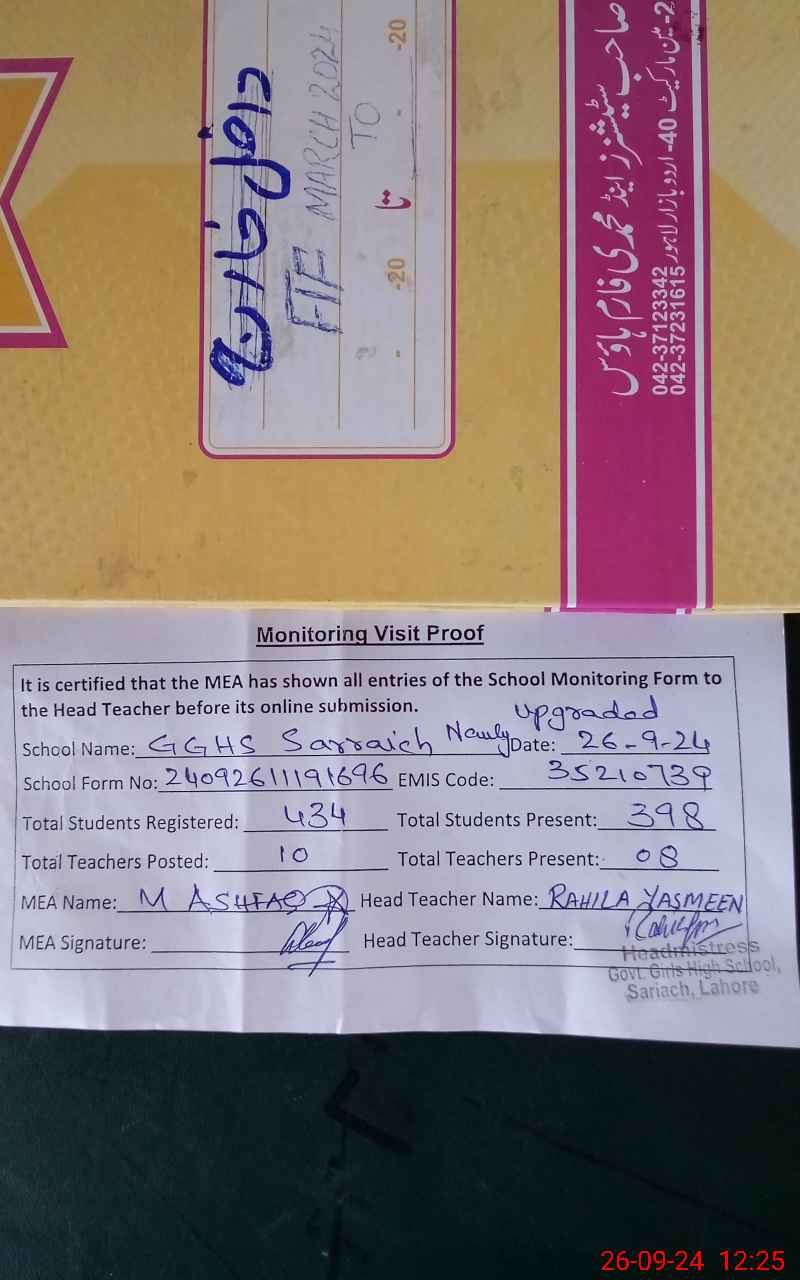 داخل خارج
FTF MARCH 2024
TO
-20 تا - -20
صاحب سٹیشنرز اینڈ محمدی فارم ہاؤس
2-مین مارکیٹ 40-اردو بازار لاہور
042-37123342
042-37231615
Monitoring Visit Proof
It is certified that the MEA has shown all entries of the School Monitoring Form to
the Head Teacher before its online submission.
School Name: GGHS Sarraich Newly upgraded Date: 26-9-24
School Form No: 24092611191696 EMIS Code: 35210739
Total Students Registered: 434 Total Students Present: 398
Total Teachers Posted: 10 Total Teachers Present: 08
MEA Name: M ASHFAQ Head Teacher Name: RAHILA YASMEEN
MEA Signature: Head Teacher Signature:
Headmistress
Govt. Girls High School,
Sariach, Lahore
26-09-24 12:25